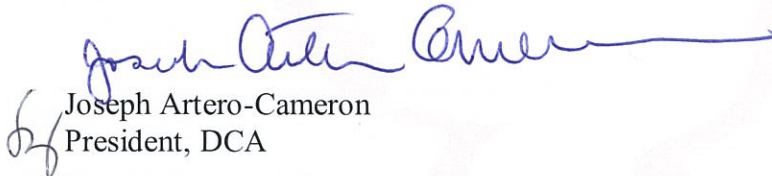 Joseph Artero Cameron
Joseph Artero-Cameron
President, DCA